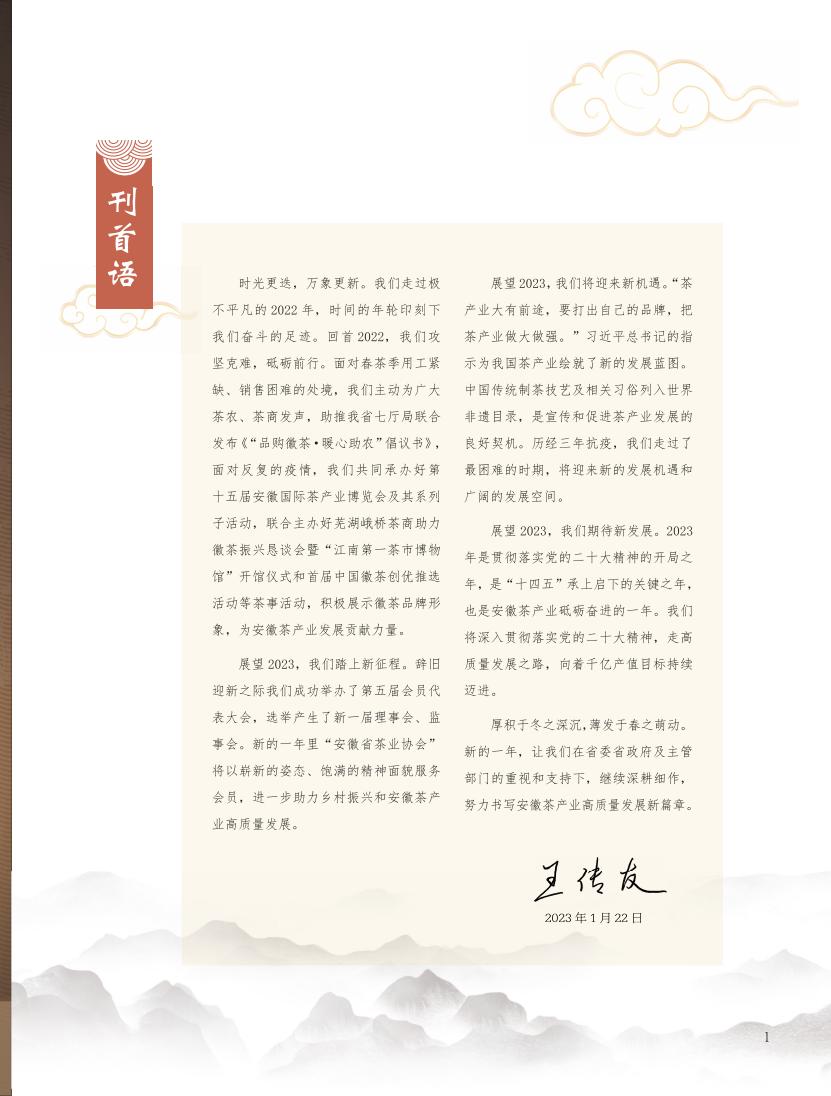 刊首语
时光更迭，万象更新。我们走过极
不平凡的 2022 年，时间的年轮印刻下
我们奋斗的足迹。回首 2022，我们攻
坚克难，砥砺前行。面对春茶季用工紧
缺、销售困难的处境，我们主动为广大
茶农、茶商发声，助推我省七厅局联合
发布《“品购徽茶·暖心助农”倡议书》，
面对反复的疫情，我们共同承办好第
十五届安徽国际茶产业博览会及其系列
子活动，联合主办好芜湖峨桥茶商助力
徽茶振兴恳谈会暨“江南第一茶市博物
馆”开馆仪式和首届中国徽茶创优推选
活动等茶事活动，积极展示徽茶品牌形
象，为安徽茶产业发展贡献力量。
展望 2023，我们踏上新征程。辞旧
迎新之际我们成功举办了第五届会员代
表大会，选举产生了新一届理事会、监
事会。新的一年里“安徽省茶业协会”
将以崭新的姿态、饱满的精神面貌服务
会员，进一步助力乡村振兴和安徽茶产
业高质量发展。
展望 2023，我们将迎来新机遇。“茶
产业大有前途，要打出自己的品牌，把
茶产业做大做强。”习近平总书记的指
示为我国茶产业绘就了新的发展蓝图。
中国传统制茶技艺及相关习俗列入世界
非遗目录，是宣传和促进茶产业发展的
良好契机。历经三年抗疫，我们走过了
最困难的时期，将迎来新的发展机遇和
广阔的发展空间。
展望 2023，我们期待新发展。2023
年是贯彻落实党的二十大精神的开局之
年，是“十四五”承上启下的关键之年，
也是安徽茶产业砥砺奋进的一年。我们
将深入贯彻落实党的二十大精神，走高
质量发展之路，向着千亿产值目标持续
迈进。
厚积于冬之深沉，薄发于春之萌动。
新的一年，让我们在省委省政府及主管
部门的重视和支持下，继续深耕细作，
努力书写安徽茶产业高质量发展新篇章。
王传友
2023 年 1 月 22 日
1